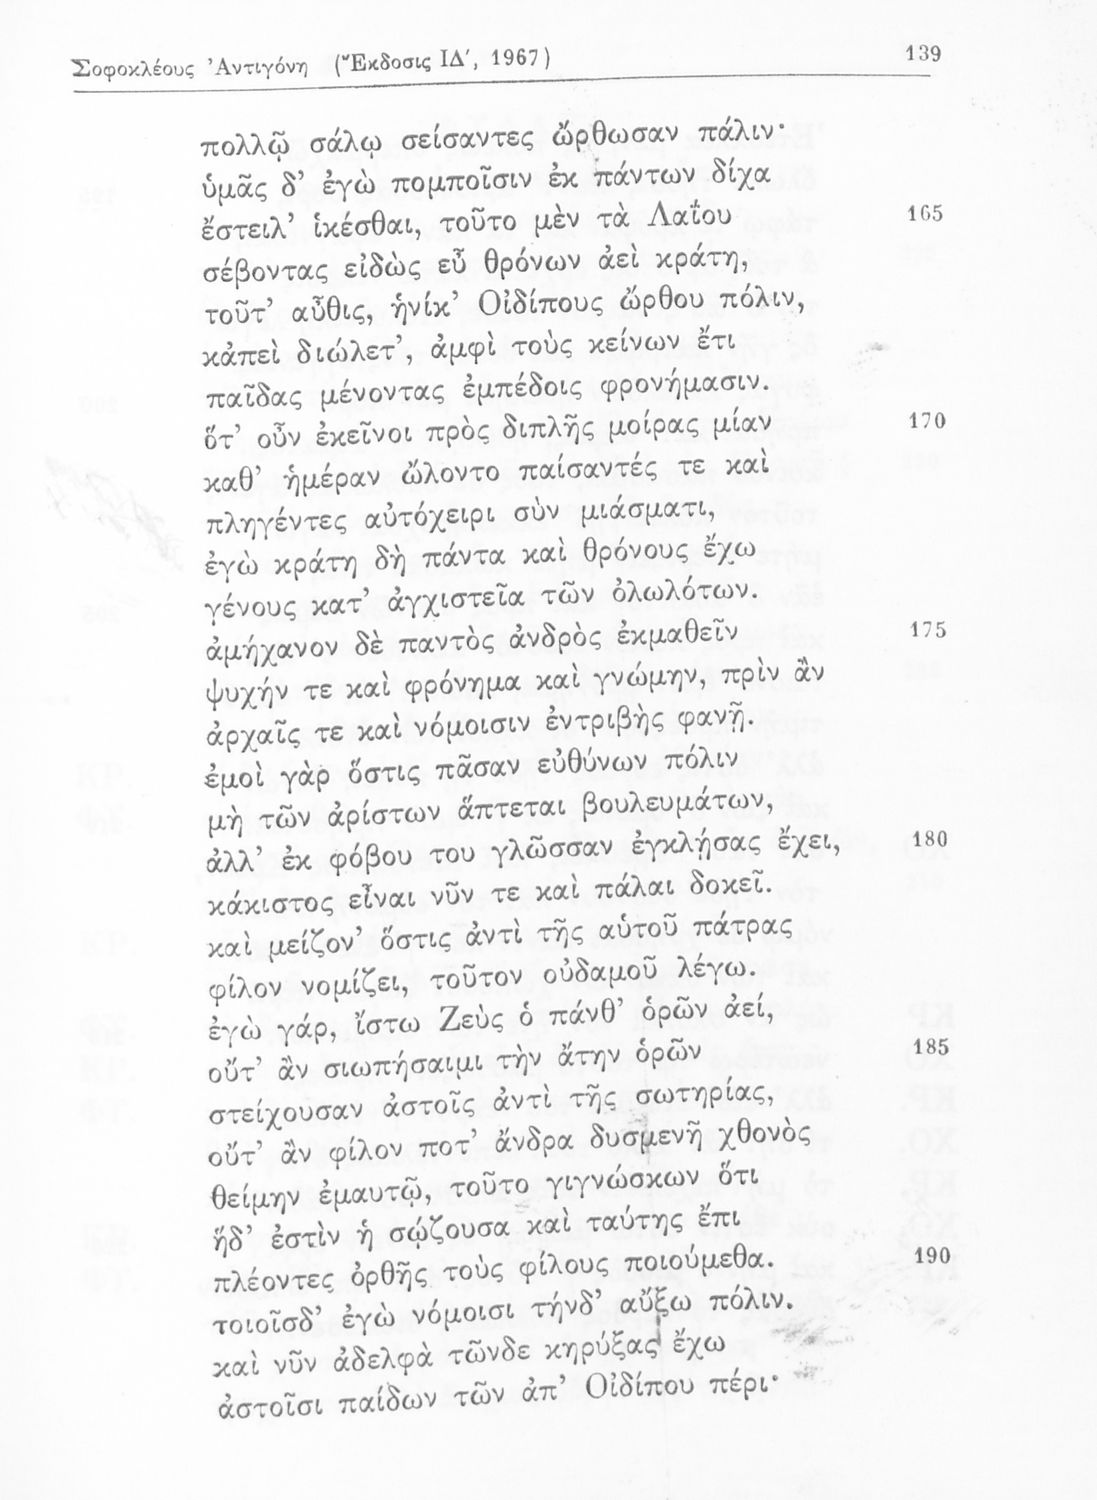 Σοφοκλέους Ἀντιγόνη (Ἔκδοσις ΙΔ', 1967) 139
πολλῷ σάλῳ σείσαντες ὤρθωσαν πάλιν·
ὑμᾶς δ' ἐγὼ πομποῖσιν ἐκ πάντων δίχα
ἔστειλ' ἱκέσθαι, τοῦτο μὲν τὰ Λαΐου 165
σέβοντας εἰδὼς εὖ θρόνων ἀεὶ κράτη,
τοῦτ' αὖθις, ἡνίκ' Οἰδίπους ὤρθου πόλιν,
κἀπεὶ διώλετ', ἀμφὶ τοὺς κείνων ἔτι
παῖδας μένοντας ἐμπέδοις φρονήμασιν.
ὅτ' οὖν ἐκεῖνοι πρὸς διπλῆς μοίρας μίαν 170
καθ' ἡμέραν ὤλοντο παίσαντές τε καὶ
πληγέντες αὐτόχειρι σὺν μιάσματι,
ἐγὼ κράτη δὴ πάντα καὶ θρόνους ἔχω
γένους κατ' ἀγχιστεῖα τῶν ὀλωλότων.
ἀμήχανον δὲ παντὸς ἀνδρὸς ἐκμαθεῖν 175
ψυχήν τε καὶ φρόνημα καὶ γνώμην, πρὶν ἂν
ἀρχαῖς τε καὶ νόμοισιν ἐντριβὴς φανῇ.
ἐμοὶ γὰρ ὅστις πᾶσαν εὐθύνων πόλιν
μὴ τῶν ἀρίστων ἅπτεται βουλευμάτων,
ἀλλ' ἐκ φόβου του γλῶσσαν ἐγκλῄσας ἔχει, 180
κάκιστος εἶναι νῦν τε καὶ πάλαι δοκεῖ.
καὶ μείζον' ὅστις ἀντὶ τῆς αὑτοῦ πάτρας
φίλον νομίζει, τοῦτον οὐδαμοῦ λέγω.
ἐγὼ γάρ, ἴστω Ζεὺς ὁ πάνθ' ὁρῶν ἀεί,
οὔτ' ἂν σιωπήσαιμι τὴν ἄτην ὁρῶν 185
στείχουσαν ἀστοῖς ἀντὶ τῆς σωτηρίας,
οὔτ' ἂν φίλον ποτ' ἄνδρα δυσμενῆ χθονὸς
θείμην ἐμαυτῷ, τοῦτο γιγνώσκων ὅτι
ἥδ' ἐστὶν ἡ σῴζουσα καὶ ταύτης ἔπι
πλέοντες ὀρθῆς τοὺς φίλους ποιούμεθα. 190
τοιοῖσδ' ἐγὼ νόμοισι τήνδ' αὔξω πόλιν.
καὶ νῦν ἀδελφὰ τῶνδε κηρύξας ἔχω
ἀστοῖσι παίδων τῶν ἀπ' Οἰδίπου πέρι·